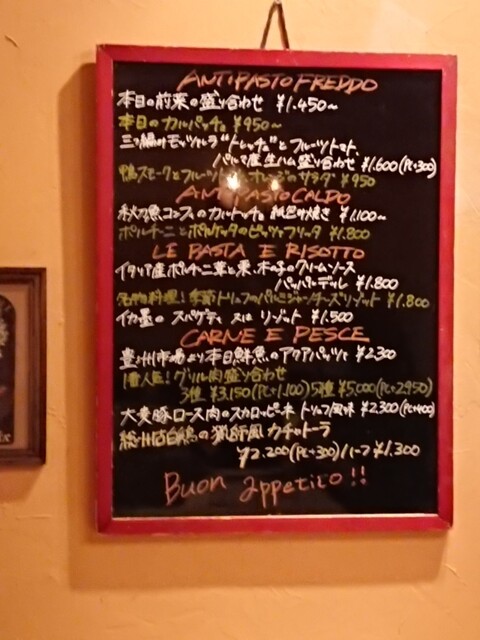 ANTIPASTO FREDDO
本日の前菜の盛り合わせ ¥1.450〜
本日のカルパッチョ ¥950〜
三つ編みモッツァレラ"トレッチャ"とフルーツトマト、
パルマ産生ハム盛り合わせ ¥1.600(PC+300)
鴨スモークとフルーツ オレンジのサラダ ¥950
ANTIPASTO CALDO
秋刀魚 の カルトッチョ 紙包み焼き ¥1.100〜
ポルチーニとポルケッタのピッツァフリッタ ¥1.800
LE PASTA E RISOTTO
イタリア産ポルチーニ茸と栗、木の子のクリームソース
パッパルデッレ ¥1.800
名物料理！季節トリュフのパルミジャーノチーズリゾット ¥1.800
イカ墨の スパゲティ 又は リゾット ¥1.500
CARNE E PESCE
豊洲市場より本日鮮魚のアクアパッツァ ¥2.300
1番人気！グリル肉盛り合わせ
3種 ¥3.150(PC+1.100) 5種 ¥5.000(PC+2950)
大麦豚ロース肉のスカロッピーネ トリュフ風味 ¥2.300(PC+400)
総州古白鶏の猟師風 カチャトーラ
¥2.200(PC+300)/ハーフ ¥1.300
Buon appetito!!